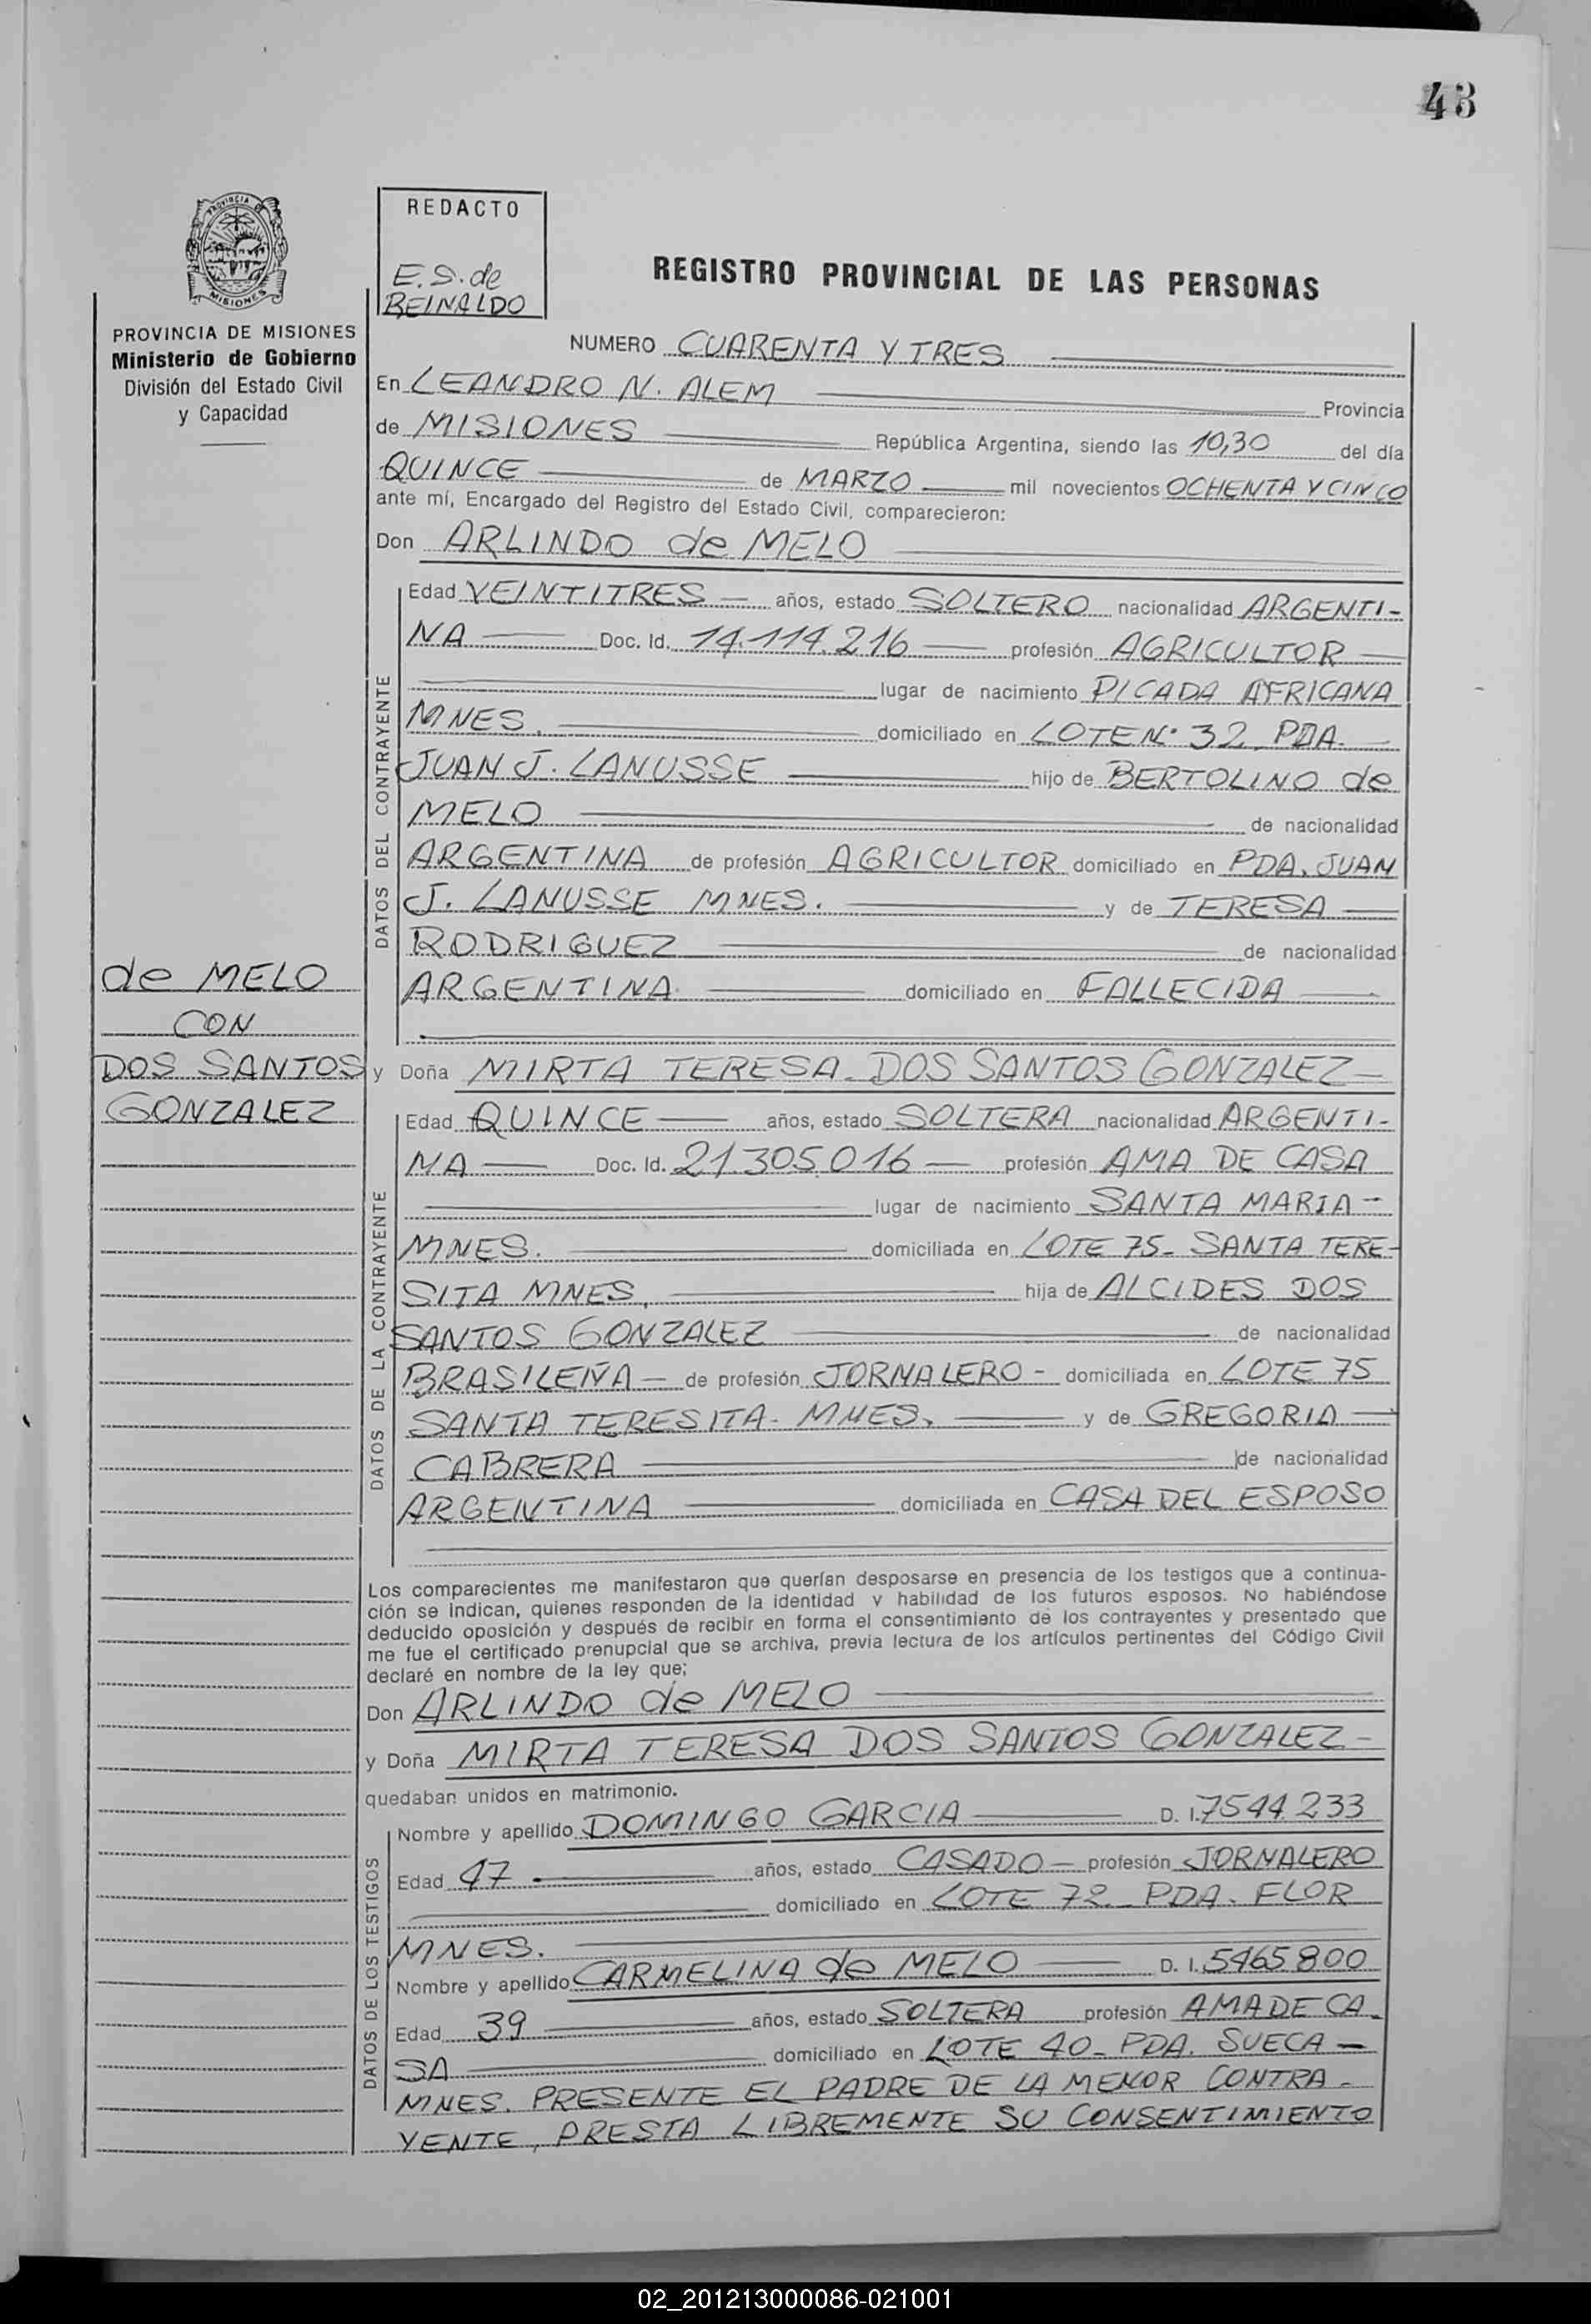 43
PROVINCIA DE
MISIONES
REDACTO
E.S. de
REINALDO
PROVINCIA DE MISIONES
Ministerio de Gobierno
División del Estado Civil
y Capacidad
REGISTRO PROVINCIAL DE LAS PERSONAS
NUMERO CUARENTA Y TRES
En LEANDRO N. ALEM Provincia
de MISIONES República Argentina, siendo las 10,30 del día
QUINCE de MARZO mil novecientos OCHENTA Y CINCO
ante mí, Encargado del Registro del Estado Civil, comparecieron:
Don ARLINDO de MELO
DATOS DEL CONTRAYENTE
Edad VEINTITRES años, estado SOLTERO nacionalidad ARGENTI-
NA Doc. Id. 14.114.216 profesión AGRICULTOR
lugar de nacimiento PICADA AFRICANA
MNES. domiciliado en LOTE N° 32, PDA.
JUAN J. LANUSSE hijo de BERTOLINO de
MELO de nacionalidad
ARGENTINA de profesión AGRICULTOR domiciliado en PDA. JUAN
J. LANUSSE MNES. y de TERESA
RODRIGUEZ de nacionalidad
ARGENTINA domiciliado en FALLECIDA
de MELO
CON
DOS SANTOS
GONZALEZ
y Doña MIRTA TERESA DOS SANTOS GONZALEZ
DATOS DE LA CONTRAYENTE
Edad QUINCE años, estado SOLTERA nacionalidad ARGENTI-
NA Doc. Id. 21.305.016 profesión AMA DE CASA
lugar de nacimiento SANTA MARIA
MNES. domiciliada en LOTE 75- SANTA TERE-
SITA MNES, hija de ALCIDES DOS
SANTOS GONZALEZ de nacionalidad
BRASILEÑA de profesión JORNALERO domiciliada en LOTE 75
SANTA TERESITA- MNES. y de GREGORIA
CABRERA de nacionalidad
ARGENTINA domiciliada en CASA DEL ESPOSO
Los comparecientes me manifestaron que querían desposarse en presencia de los testigos que a continua-
ción se indican, quienes responden de la identidad y habilidad de los futuros esposos. No habiéndose
deducido oposición y después de recibir en forma el consentimiento de los contrayentes y presentado que
me fue el certificado prenupcial que se archiva, previa lectura de los artículos pertinentes del Código Civil
declaré en nombre de la ley que;
Don ARLINDO de MELO
y Doña MIRTA TERESA DOS SANTOS GONZALEZ
quedaban unidos en matrimonio.
DATOS DE LOS TESTIGOS
Nombre y apellido DOMINGO GARCIA D. I. 7544.233
Edad 47 años, estado CASADO profesión JORNALERO
domiciliado en LOTE 72- PDA. FLOR
MNES.
Nombre y apellido CARMELINA de MELO D. I. 5465.800
Edad 39 años, estado SOLTERA profesión AMA DE CA-
SA domiciliado en LOTE 40- PDA. SUECA
MNES. PRESENTE EL PADRE DE LA MENOR CONTRA-
YENTE, PRESTA LIBREMENTE SU CONSENTIMIENTO
02_201213000086-021001